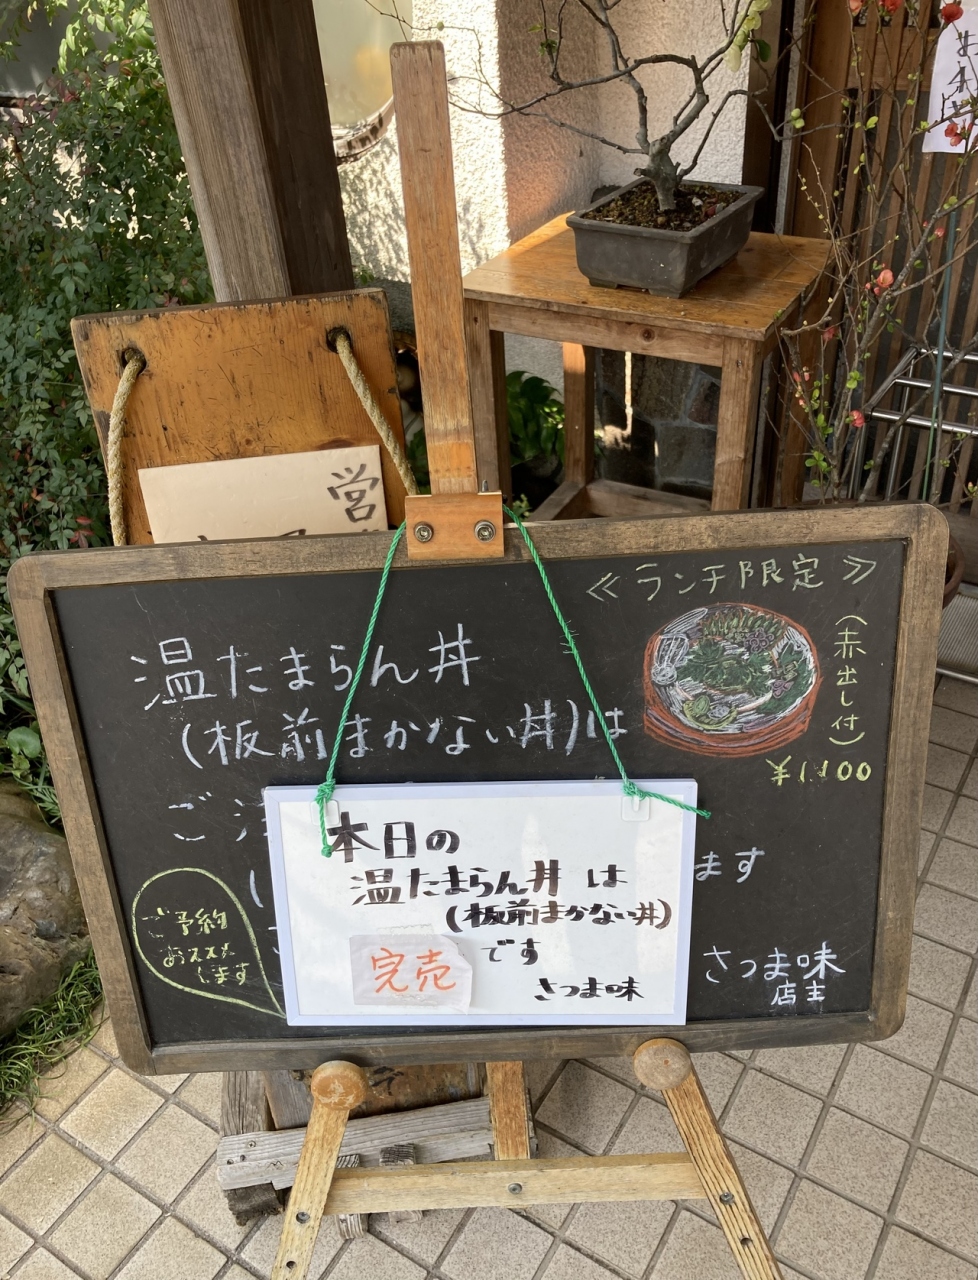 営
≪ランチ限定≫
温たまらん丼
(板前まかない丼)は
(赤出し付)
¥1,100
ご
ます
ご予約
おススメ
します
さつま味
店主
本日の
温たまらん丼 は
(板前まかない丼)
完売 です
さつま味